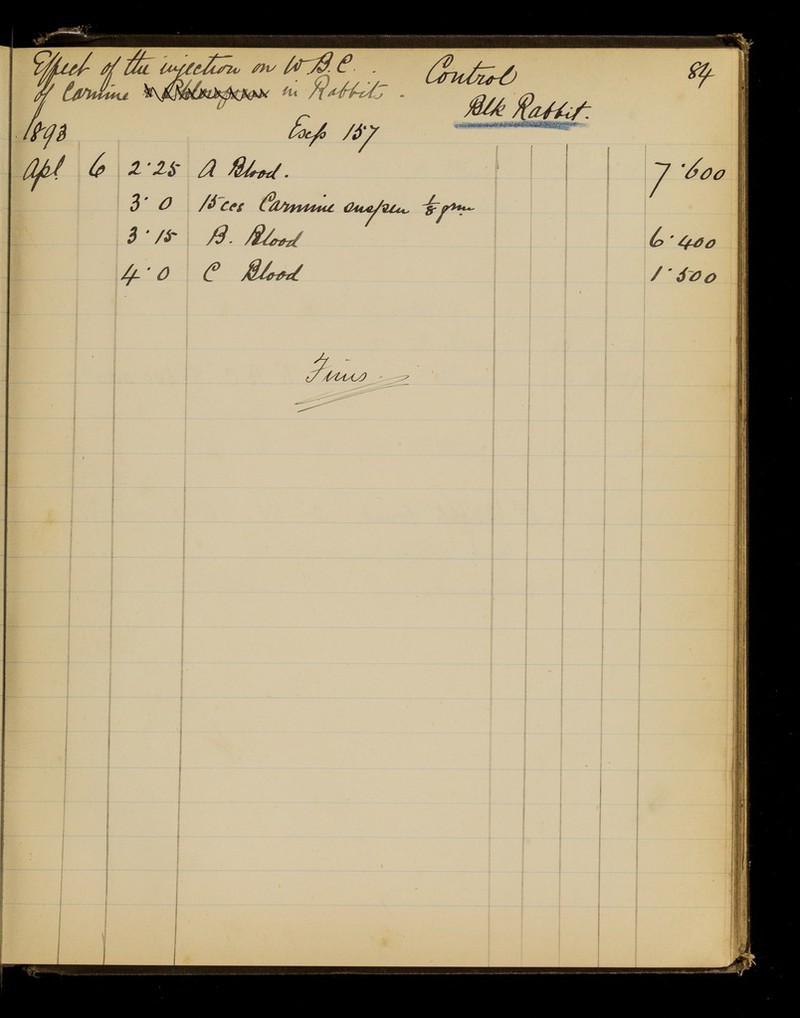 Effect of the injection on W.B.C. Control 84
of Carmine in Rabbits. Blk Rabbit.
1893 Exp 157
Apl. 6 2·25 A Blood. 7·600
3·0 15 ccs Carmine suspen 1/8 grm
3·15 B. Blood 6·400
4·0 C Blood 1·500
Finis